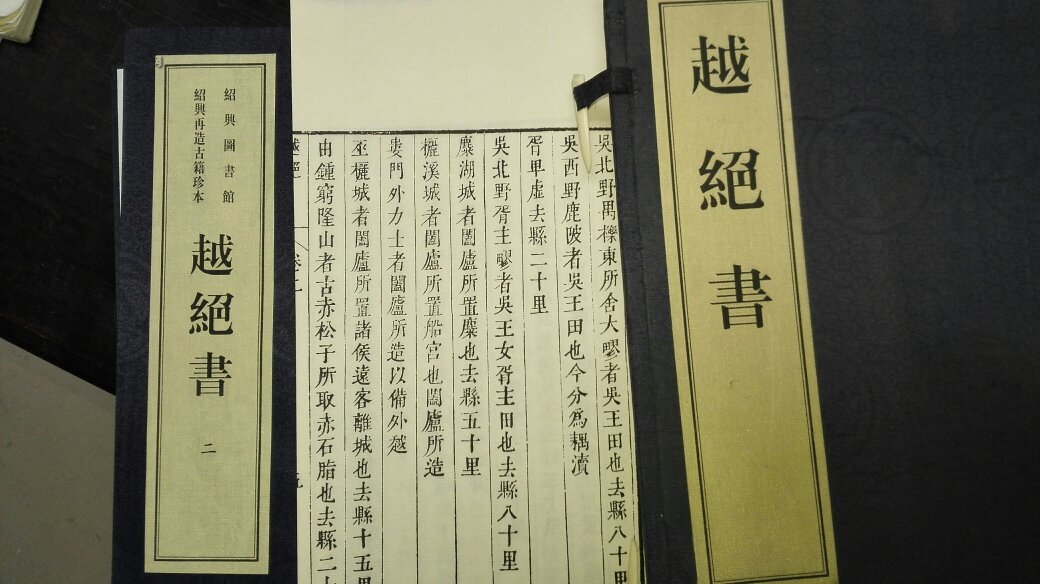 越絕書
吳北野禺櫟東所舍大疁者吳王田也去縣八十里
吳西野鹿陂者吳王田也今分爲耦瀆
胥卑虛去縣二十里
吳北野胥主疁者吳王女胥主田也去縣八十里
麋湖城者闔廬所置麋也去縣五十里
欐溪城者闔廬所置船宮也闔廬所造
婁門外力士者闔廬所造以備外越
巫欐城者闔廬所置諸侯遠客離城也去縣十五里
由鍾窮隆山者古赤松子所取赤石脂也去縣二十
越絕 卷二 九
紹興圖書館
紹興再造古籍珍本
越絕書
二